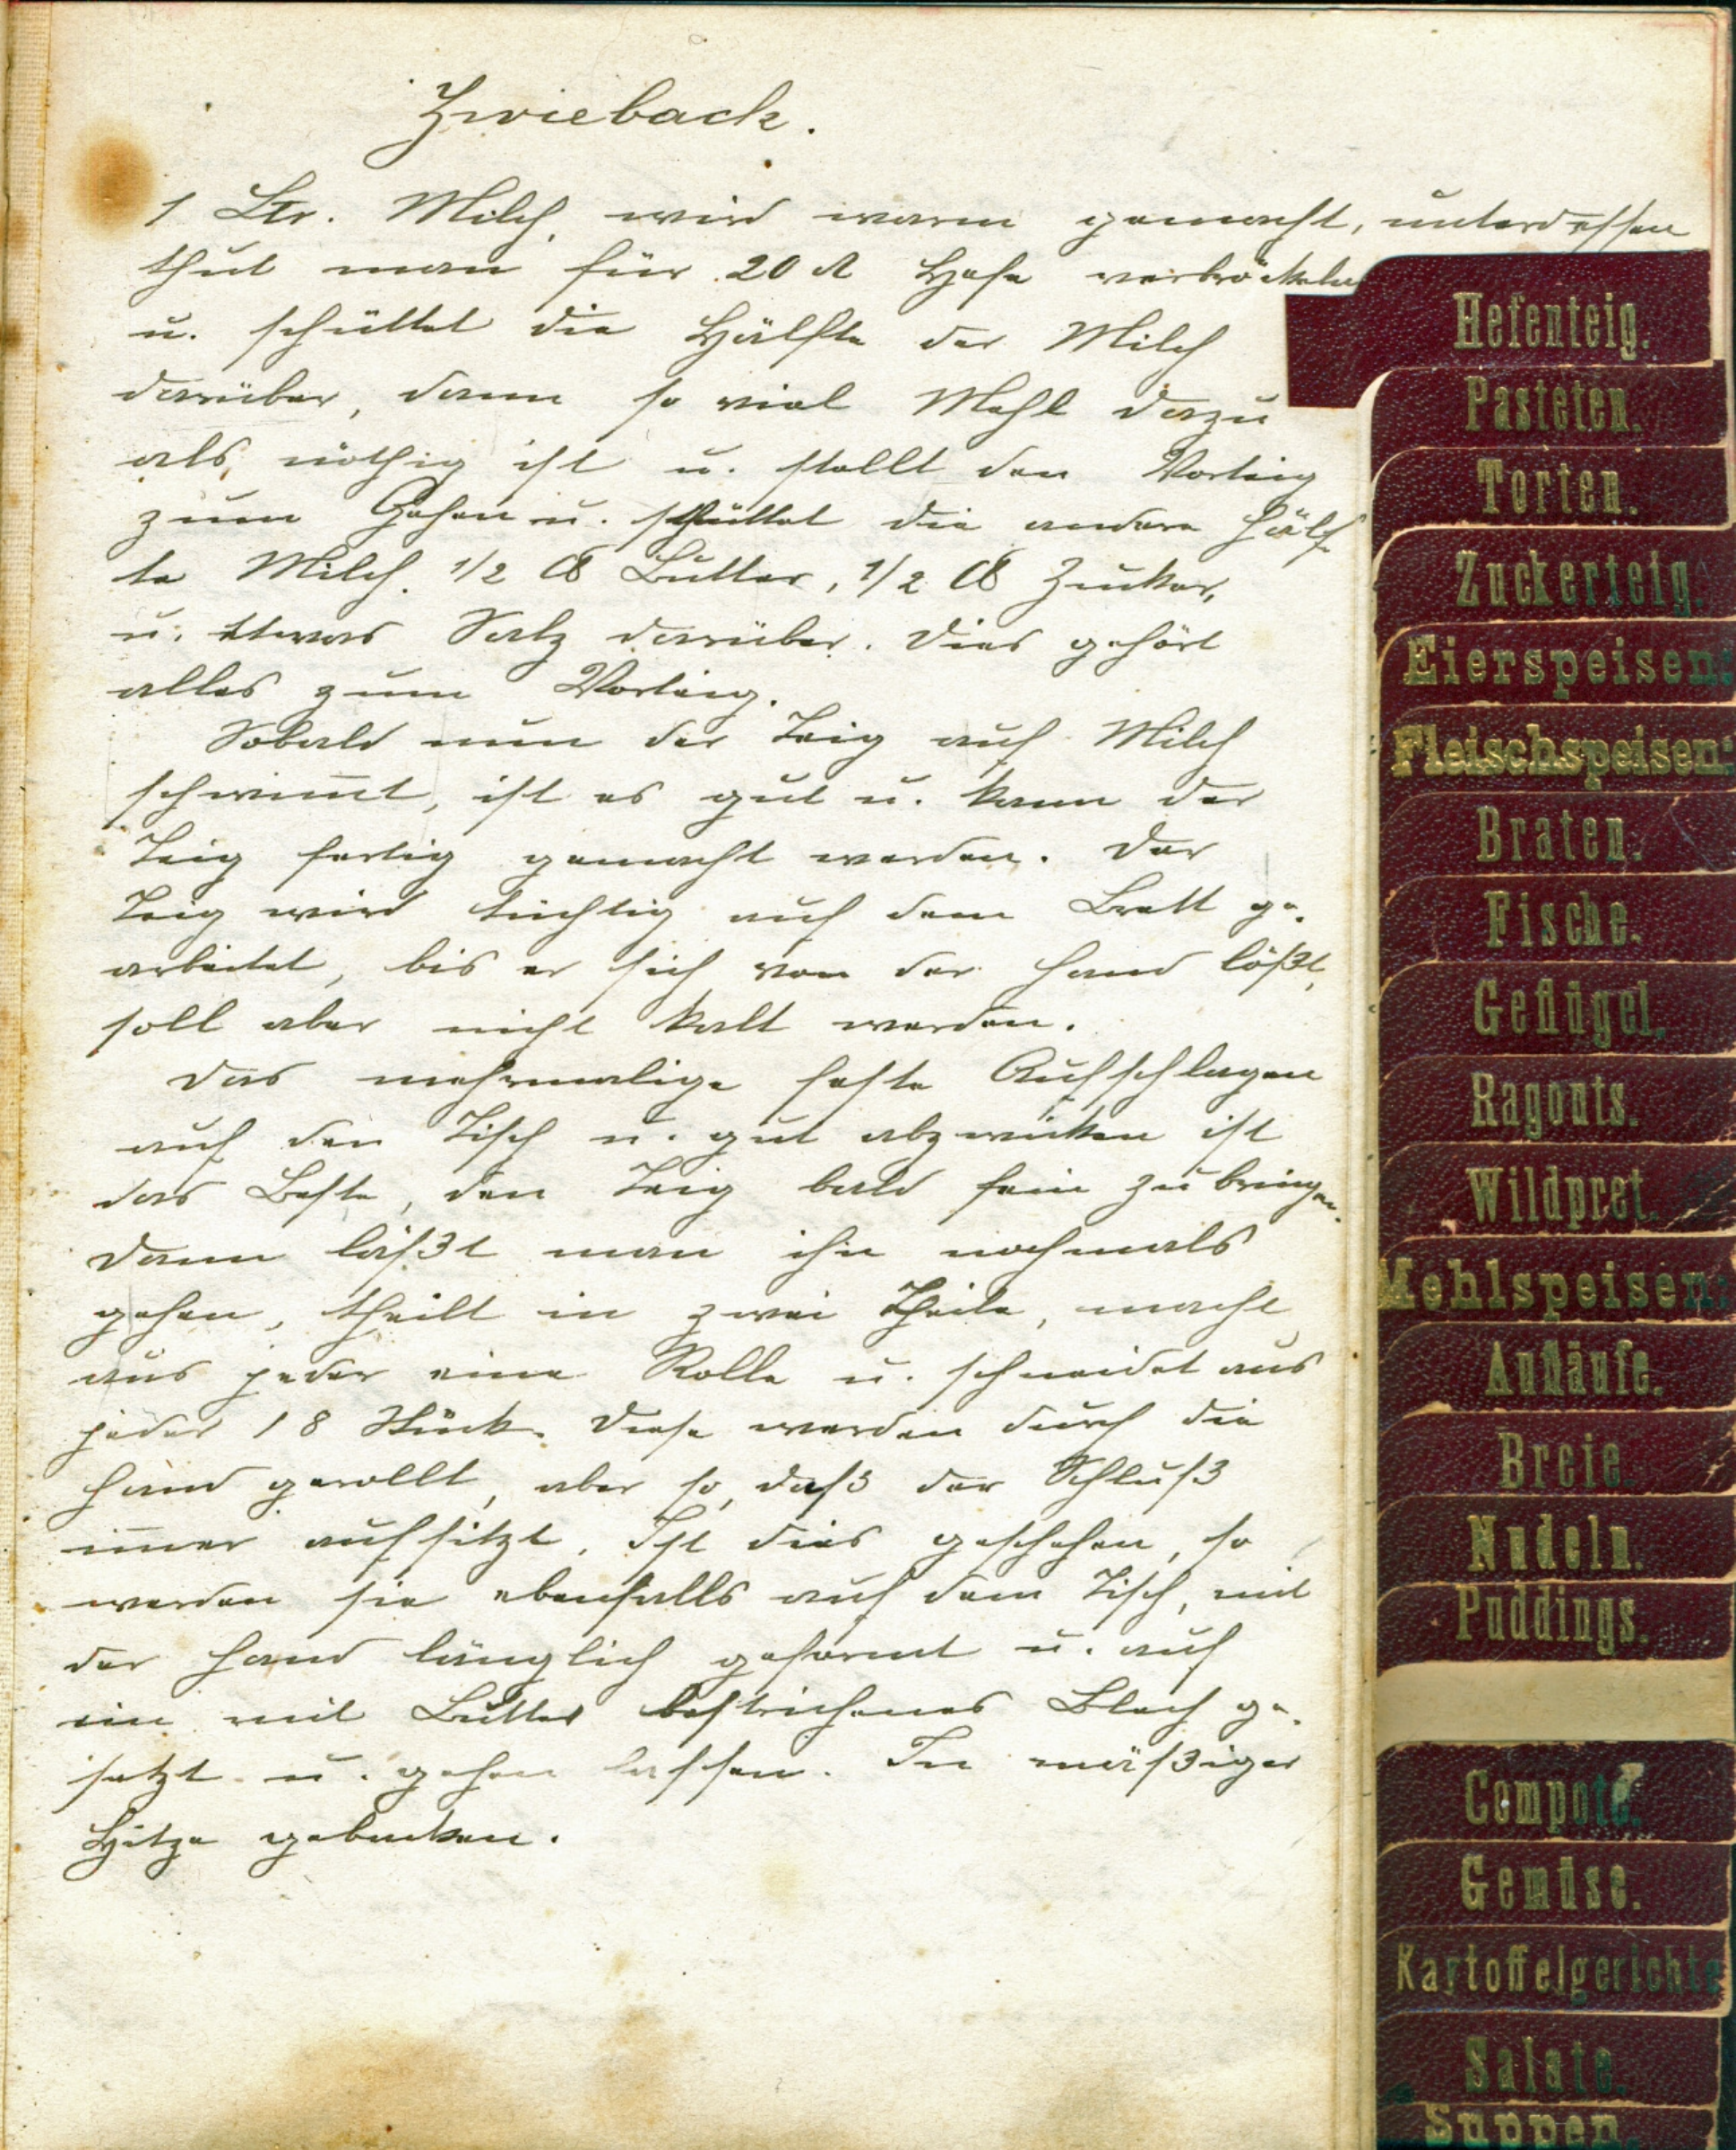 Zwieback.
1 Ltr. Milch, wird warm gemacht, unterdessen
thut man für 20 ₰ Hefe verbröckeln
u. schüttet die Hälfte der Milch
darüber, dann so viel Mehl dazu
als nöthig ist u. stellt den Vorteig
zum Gehen u. schüttet die andere Hälf
te Milch. 1/2 ℔ Butter, 1/2 ℔ Zucker,
u. etwas Salz darüber. Dies gehört
alles zum Vorteig.
Sobald nun der Teig auf Milch
schwim̄t, ist es gut u. kann der
Teig fertig gemacht werden. Der
Teig wird tüchtig auf dem Brett ge-
arbeitet, bis er sich von der Hand lößt,
soll aber nicht kalt werden.
Das mehrmalige feste Aufschlagen
auf den Tisch u. gut abzwicken ist
das Beste, den Teig bald fein zu bringen.
Dann läßt man ihn nochmals
gehen, theilt in zwei Theile, macht
aus jeder eine Rolle u. schneidet aus
jeder 18 Stück. Diese werden durch die
Hand gerollt, aber so, daß der Schluß
im̄er aufsitzt. Ist dies geschehen, so
werden sie ebenfalls auf dem Tisch, mit
der Hand länglich geformt u. auf
ein mit Butter bestrichenes Blech ge-
setzt u. gehen lassen. In mäßiger
Hitze gebacken.
Hefenteig.
Pasteten.
Torten.
Zuckerteig.
Eierspeisen:
Fleischspeisen:
Braten.
Fische.
Geflügel.
Ragouts.
Wildpret.
Mehlspeisen:
Aufläufe.
Breie.
Nudeln.
Puddings.
Compote.
Gemüse.
Kartoffelgerichte
Salate.
Suppen.